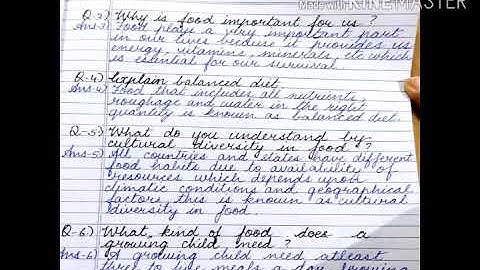 Made with KINEMASTER
Q-3) Why is food important for us?
Ans-3) Food plays a very important part
in our lives because it provides us
energy, vitamins, minerals, etc which
is essential for our survival.
Q-4) Explain balanced diet.
Ans-4) Food that includes all nutrients,
roughage and water in the right
quantity is known as balanced diet.
Q-5) What do you understand by
cultural diversity in food?
Ans-5) All countries and states have different
food habits due to availability of
resources which depends upon
climatic conditions and geographical
factors, this is known as cultural
diversity in food.
Q-6) What kind of food does a
growing child need?
Ans-6) A growing child need atleast
three to five meals a day